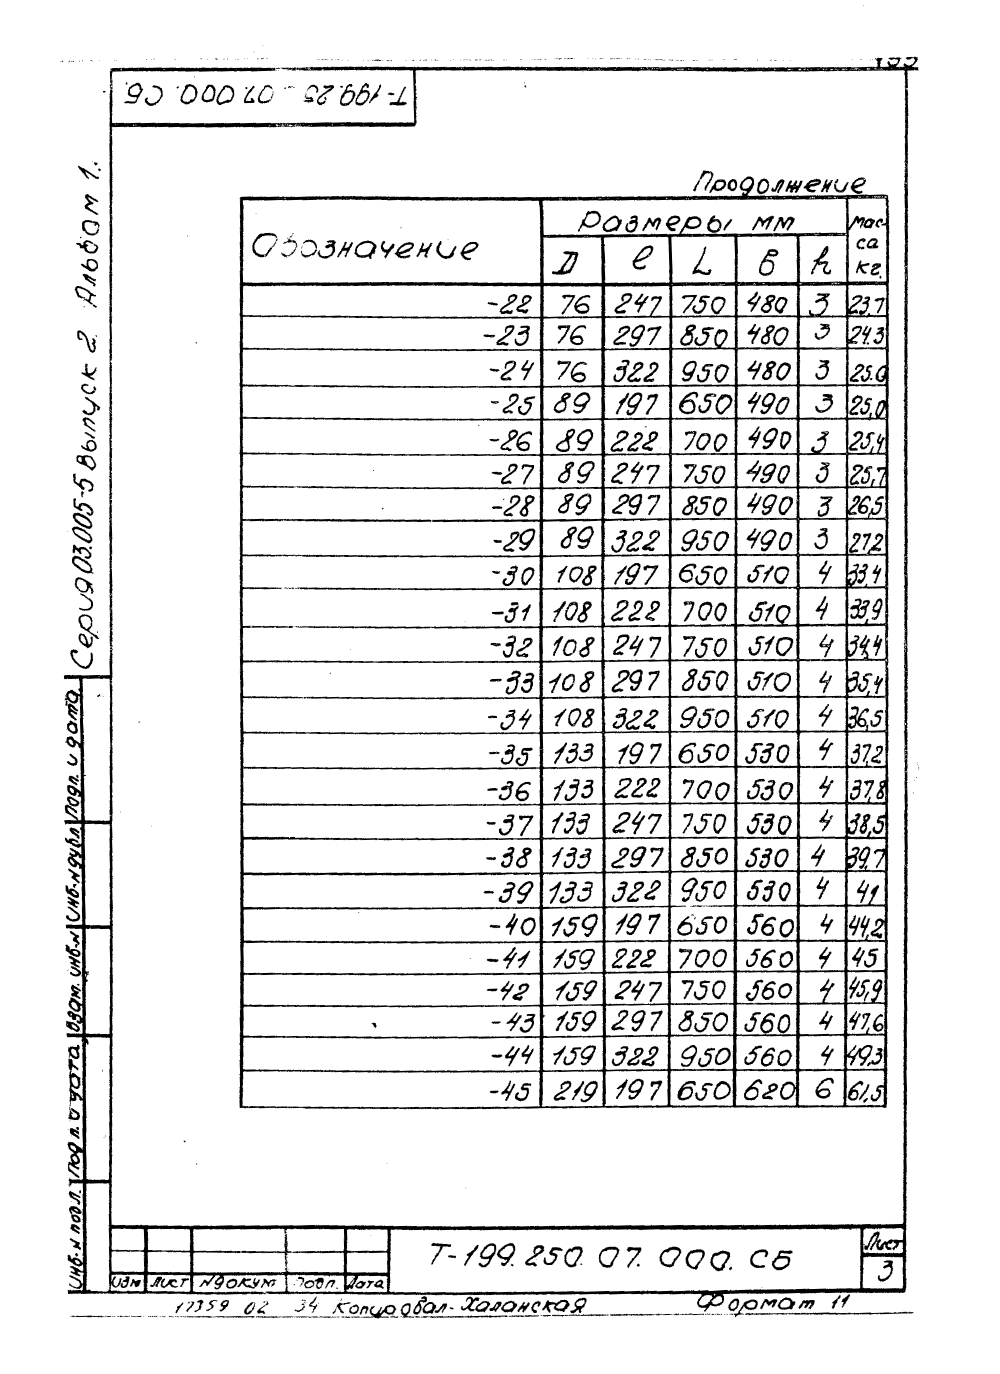 Т-199.25 07.000.СБ
Продолжение
Обозначение Размеры мм Мас-са кг.
D ℓ L в h
-22 76 247 750 480 3 23.7
-23 76 297 850 480 3 24.3
-24 76 322 950 480 3 25.0
-25 89 197 650 490 3 25,0
-26 89 222 700 490 3 25,4
-27 89 247 750 490 3 25,7
-28 89 297 850 490 3 26,5
-29 89 322 950 490 3 27,2
-30 108 197 650 510 4 33,4
-31 108 222 700 510 4 33,9
-32 108 247 750 510 4 34,4
-33 108 297 850 510 4 35,4
-34 108 322 950 510 4 36,5
-35 133 197 650 530 4 37,2
-36 133 222 700 530 4 37,8
-37 133 247 750 530 4 38,5
-38 133 297 850 530 4 39,7
-39 133 322 950 530 4 41
-40 159 197 650 560 4 44,2
-41 159 222 700 560 4 45
-42 159 247 750 560 4 45,9
-43 159 297 850 560 4 47,6
-44 159 322 950 560 4 49,3
-45 219 197 650 620 6 61.5
Серия 03.005-5 Выпуск 2. Альбом 1.
Инв.N подл. Подп. и дата Взам. инв.N Инв.N дубл. Подп. и дата
Т-199.250.07.000.СБ
Лист
3
Изм Лист Nдокум Подп. Дата
17359 02 34 Копировал-Халанская Формат 11